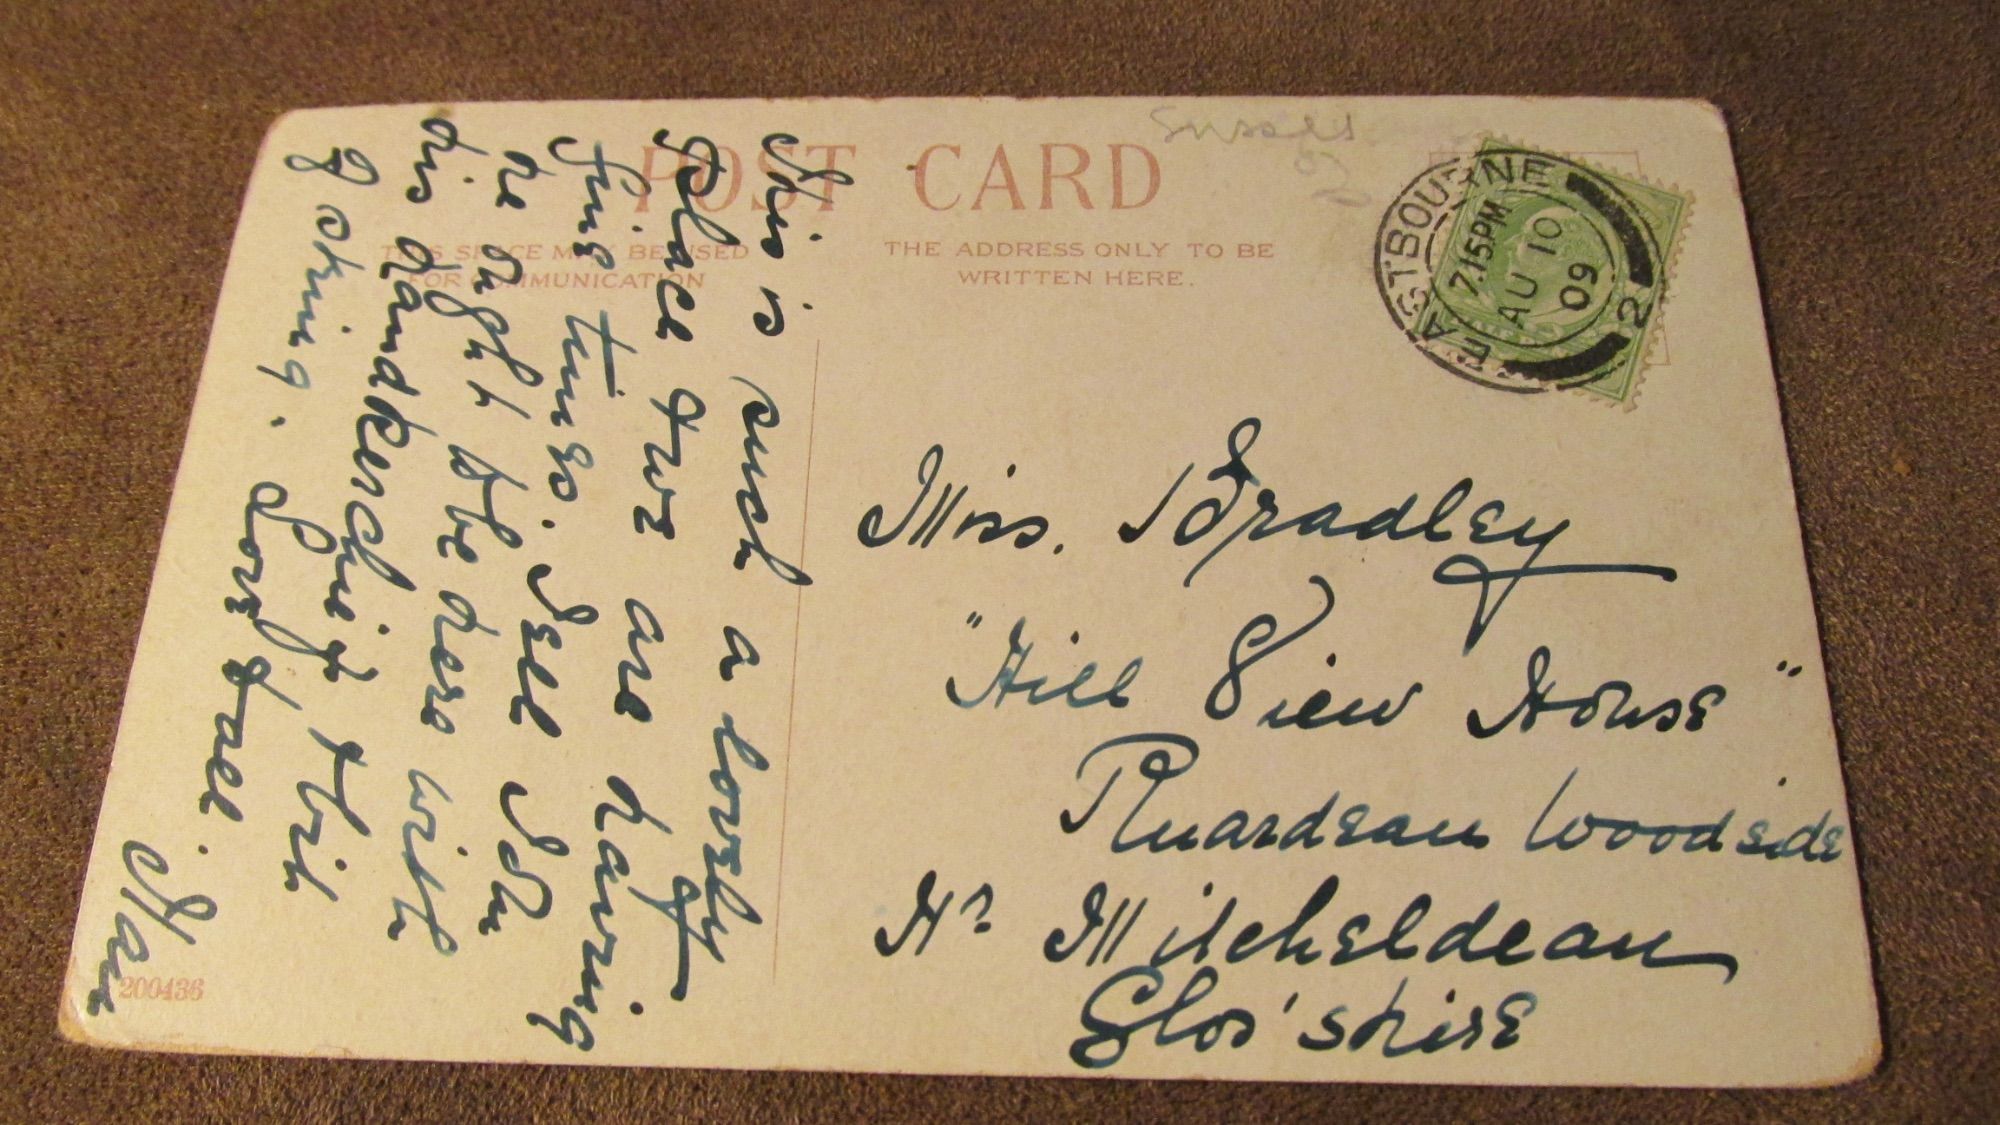 POST CARD
THIS SPACE MAY BE USED
FOR COMMUNICATION
THE ADDRESS ONLY TO BE
WRITTEN HERE.
Sussex
EASTBOURNE
7.15PM
AU 10
09
2
This is such a lovely
place & we are having
fine times. Tell Tom
he ought to be here with
his handkerchief
fishing. Love to all.
Nan
Miss. Bradley
"Hill View House"
Ruardean Woodside
Nr Mitcheldean
Glos'shire
200436